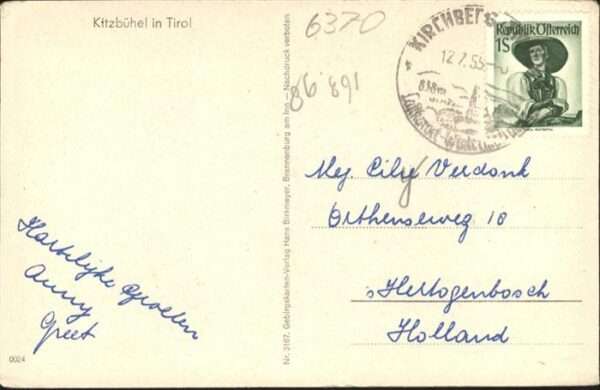 Kitzbühel in Tirol
6370
86'891
KIRCHBERG
12.7.55
838m
Republik Österreich
1S
Nr. 3167. Gebirgskarten-Verlag Hans Birkmeyer, Brannenburg am Inn — Nachdruck verboten
Mej. Cily Verdonk
Orthenseweg 10
's Hertogenbosch
Holland
Hartelijke groeten
Anny
Greet
0024